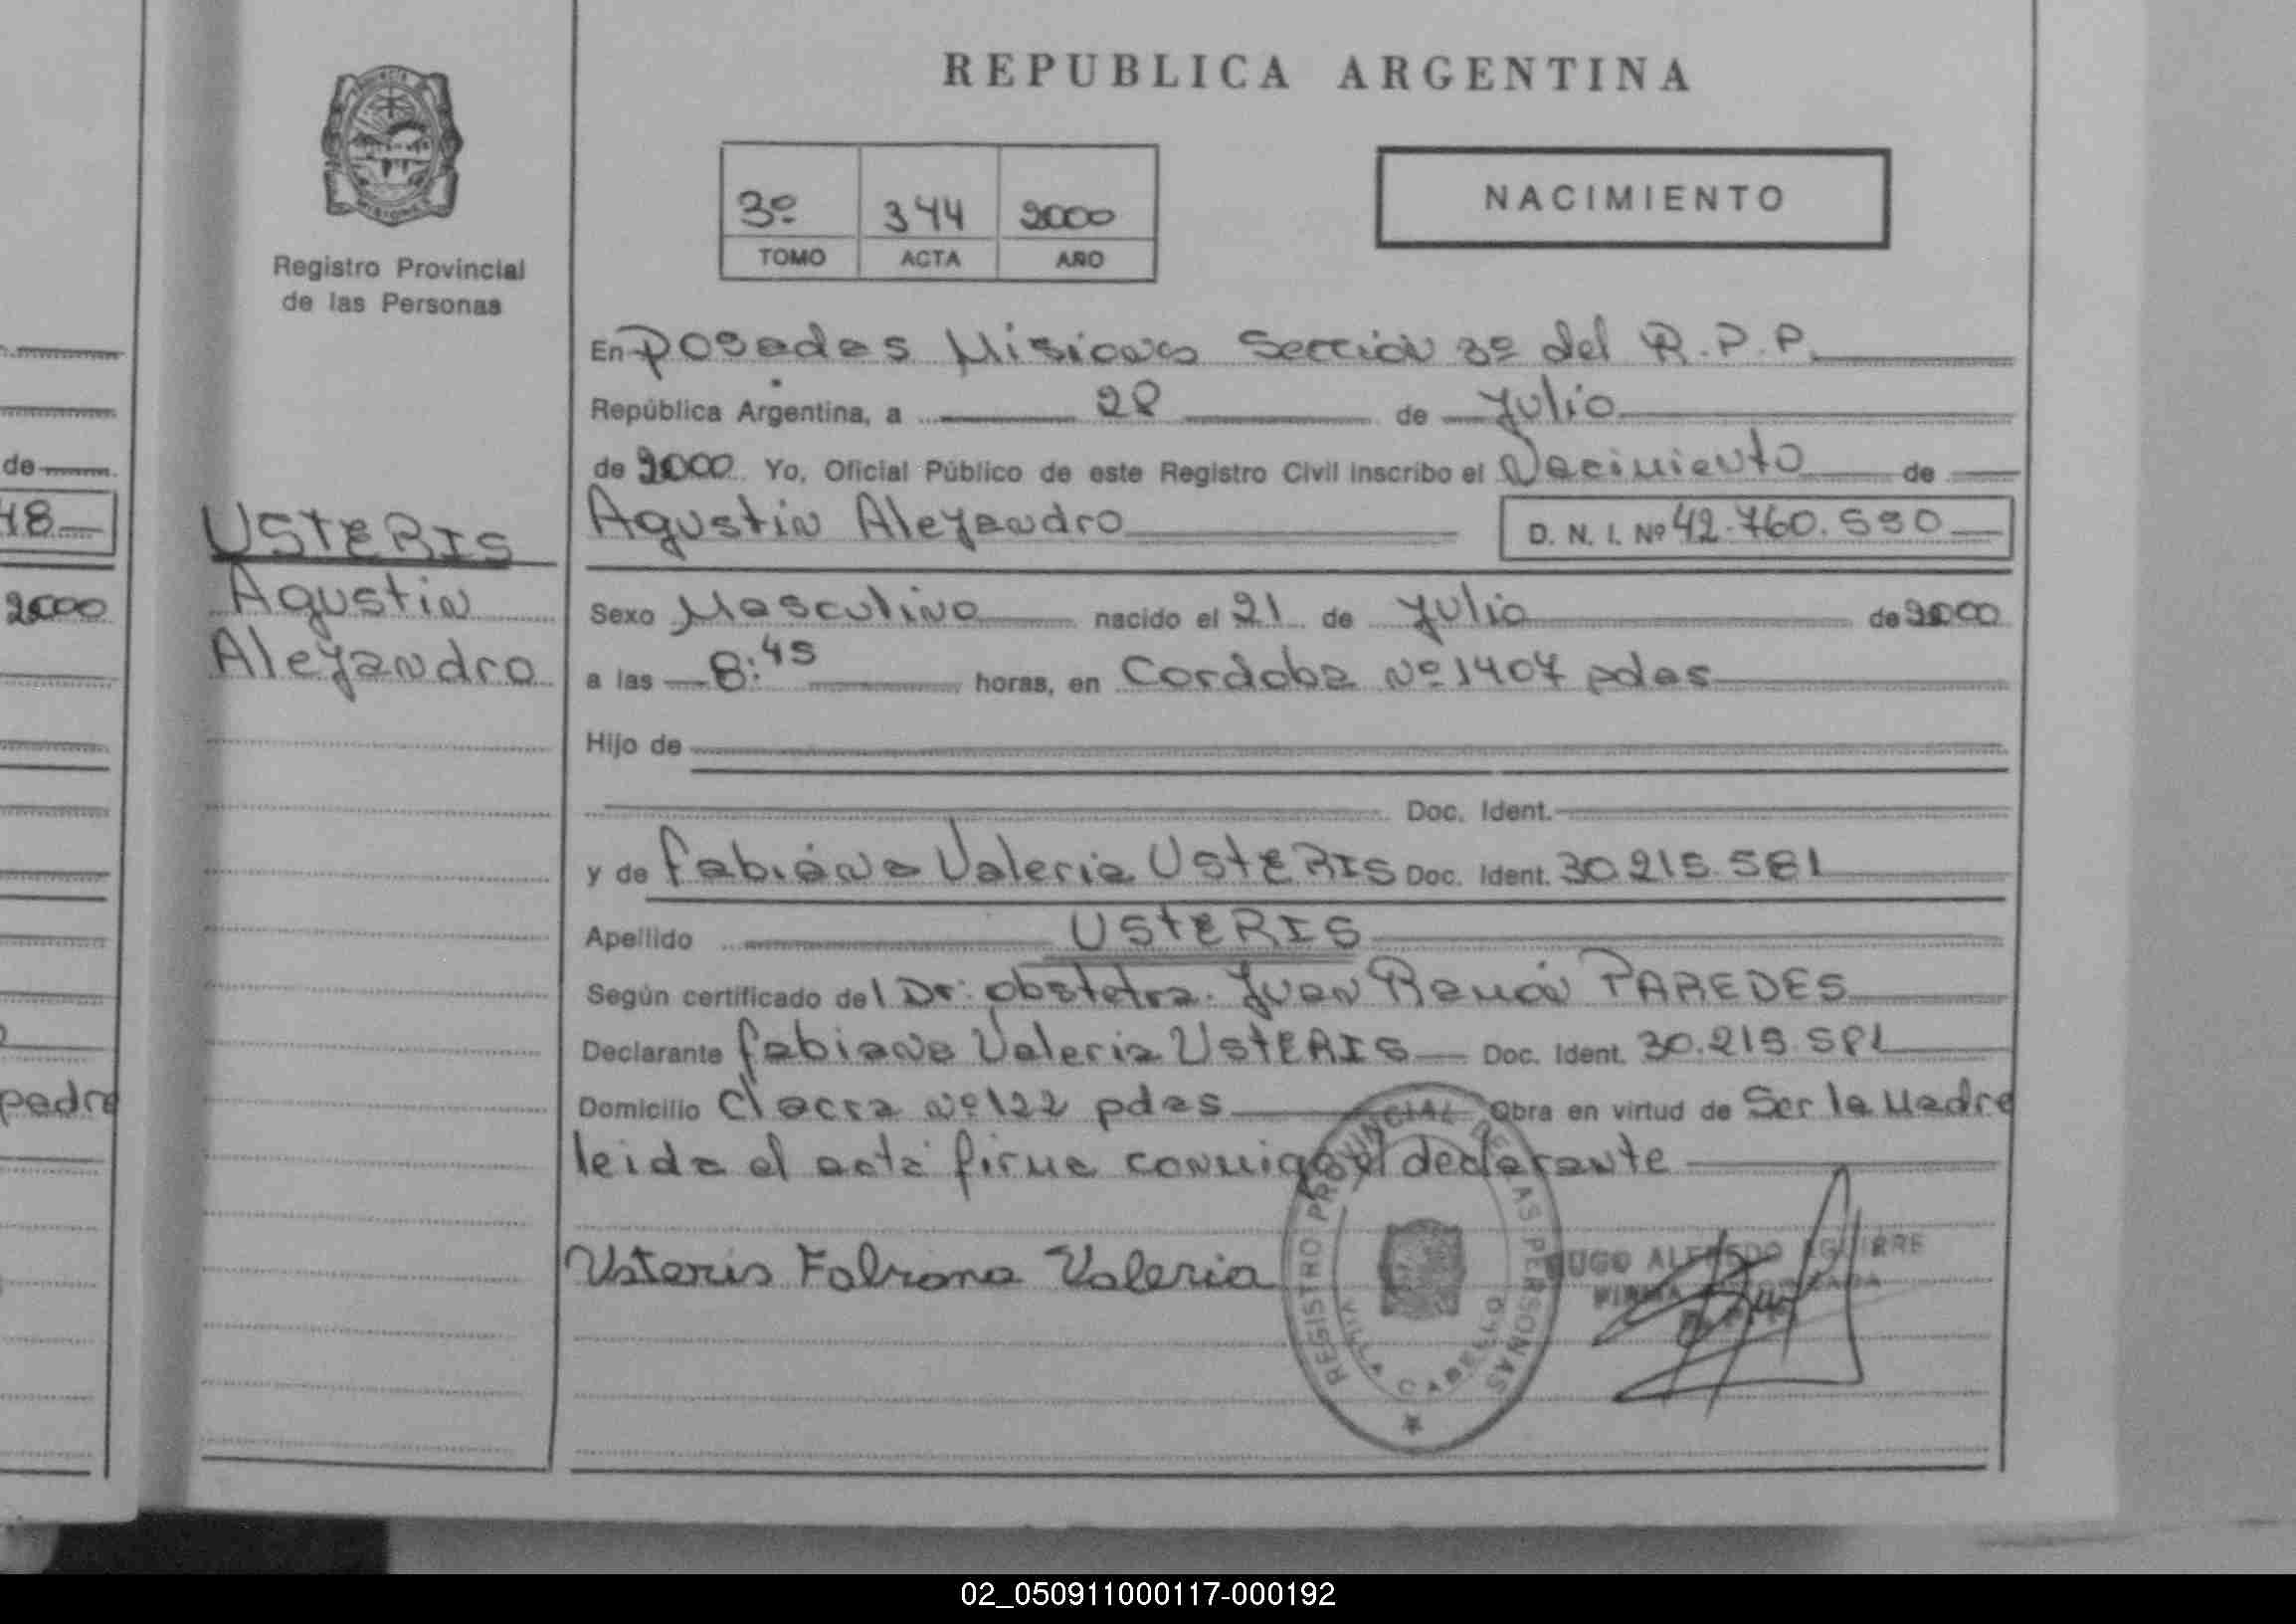 REPUBLICA ARGENTINA
PROVINCIA
MISIONES
Registro Provincial
de las Personas
3º 344 2000
TOMO ACTA AÑO
NACIMIENTO
En Posadas Misiones Sección 3º del R.P.P.
República Argentina, a 28 de Julio
de de 2000 Yo, Oficial Público de este Registro Civil inscribo el Nacimiento de
48 USTERIS Agustin Alejandro D. N. I. Nº 42.760.590
2000 Agustin Sexo Masculino nacido el 21 de Julio de 2000
Alejandro a las 8:45 horas, en Cordoba Nº 1407 pdas
Hijo de
Doc. Ident.
y de Fabiána Valeria UStERIS Doc. Ident. 30.215.581
Apellido UStERIS
Según certificado del Dr: obstetra. Juan Ramón PAREDES
Declarante Fabiana Valeria UStERIS Doc. Ident. 30.215.581
padre Domicilio Chacra Nº 122 pdas Obra en virtud de Ser la Madre
leida el acta firma conmigo el declarante
Usteris Fabiana Valeria
REGISTRO PROVINCIAL DE LAS PERSONAS
VILLA CABELLO
HUGO ALFREDO AGUIRRE
FIRMA AUTORIZADA
02_050911000117-000192